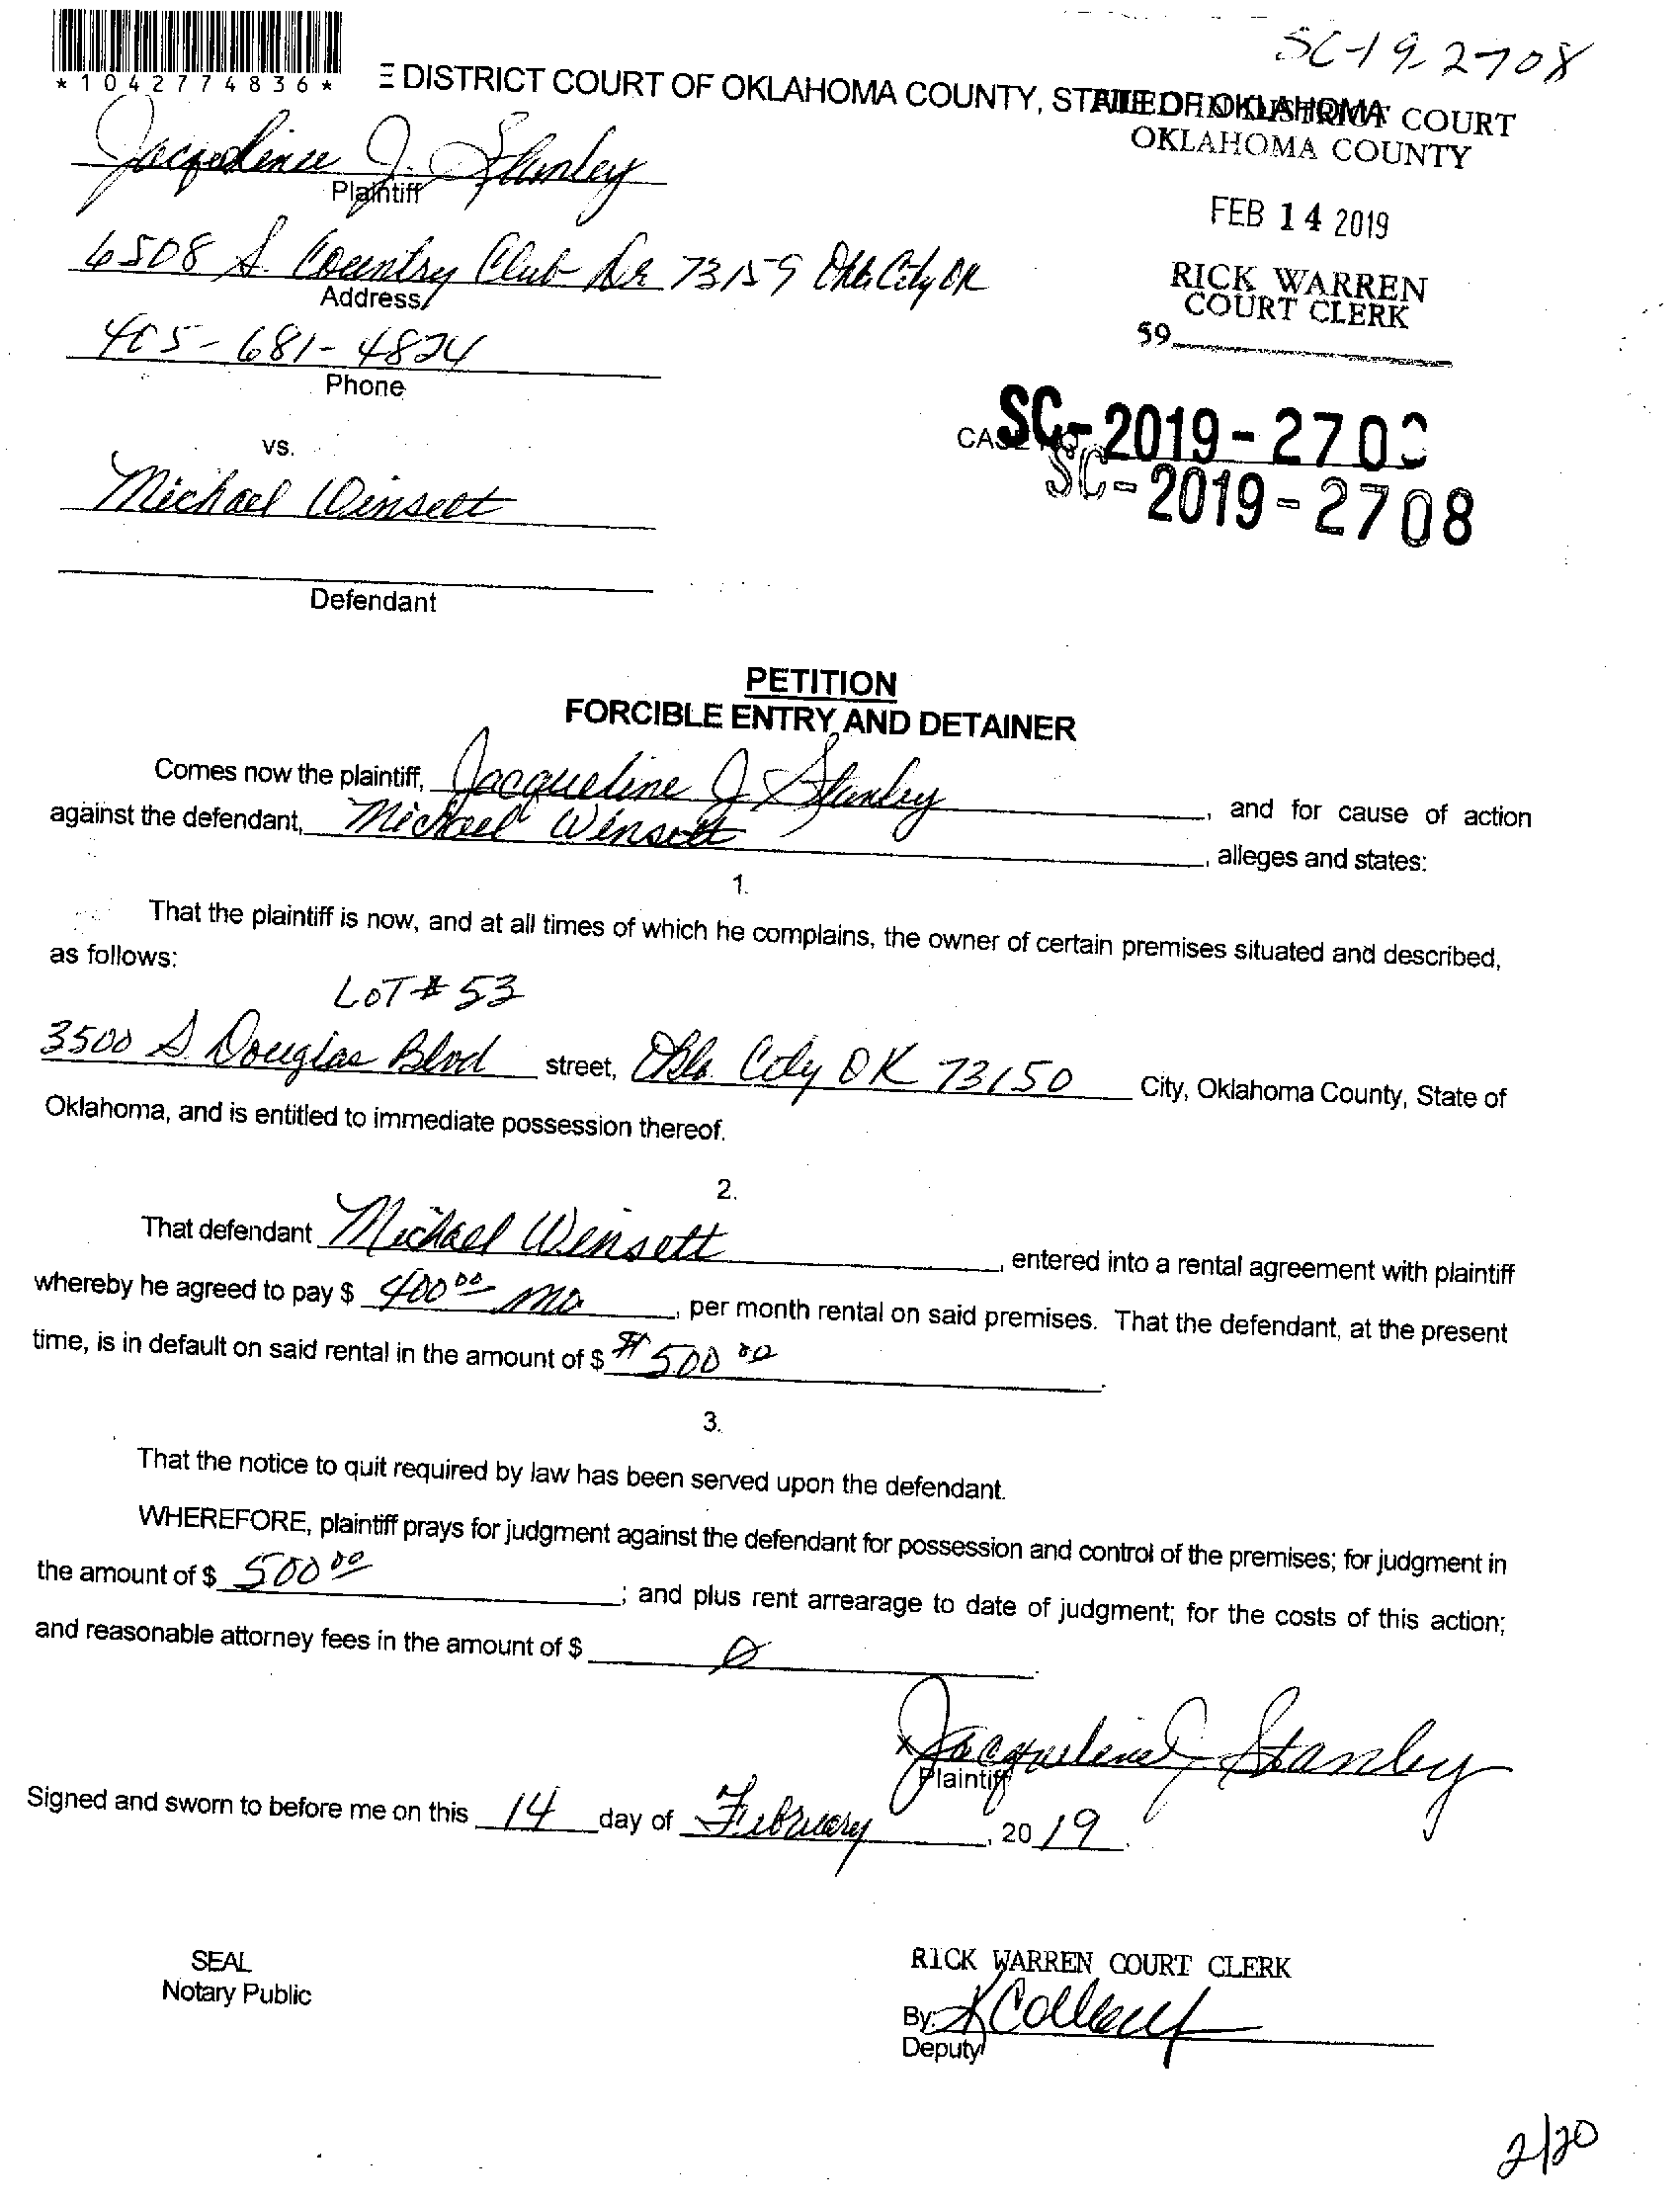 SC-19-2708
*1042774836*
E DISTRICT COURT OF OKLAHOMA COUNTY, STATE OF OKLAHOMA
FILED IN DISTRICT COURT
OKLAHOMA COUNTY
Jacqueline J. Stanley
Plaintiff
FEB 14 2019
6508 S. Country Club Dr. 73159 Okla City OK
Address
RICK WARREN
COURT CLERK
59
405-681-4824
Phone
CASE NO. SC-2019-270
SC-2019-2708
vs.
Michael Winsett
Defendant
PETITION
FORCIBLE ENTRY AND DETAINER
Comes now the plaintiff, Jacqueline J Stanley, and for cause of action
against the defendant, Michael Winsett, alleges and states:
1.
That the plaintiff is now, and at all times of which he complains, the owner of certain premises situated and described,
as follows:
LOT # 53
3500 S. Douglas Blvd street, Okla. City OK 73150 City, Oklahoma County, State of
Oklahoma, and is entitled to immediate possession thereof.
2.
That defendant Michael Winsett, entered into a rental agreement with plaintiff
whereby he agreed to pay $ 400 00 mo, per month rental on said premises. That the defendant, at the present
time, is in default on said rental in the amount of $ # 500 00.
3.
That the notice to quit required by law has been served upon the defendant.
WHEREFORE, plaintiff prays for judgment against the defendant for possession and control of the premises; for judgment in
the amount of $ 500 00; and plus rent arrearage to date of judgment; for the costs of this action;
and reasonable attorney fees in the amount of $ 0.
x Jacqueline J Stanley
Plaintiff
Signed and sworn to before me on this 14 day of February, 20 19.
SEAL
Notary Public
RICK WARREN COURT CLERK
By:
Deputy
2/20